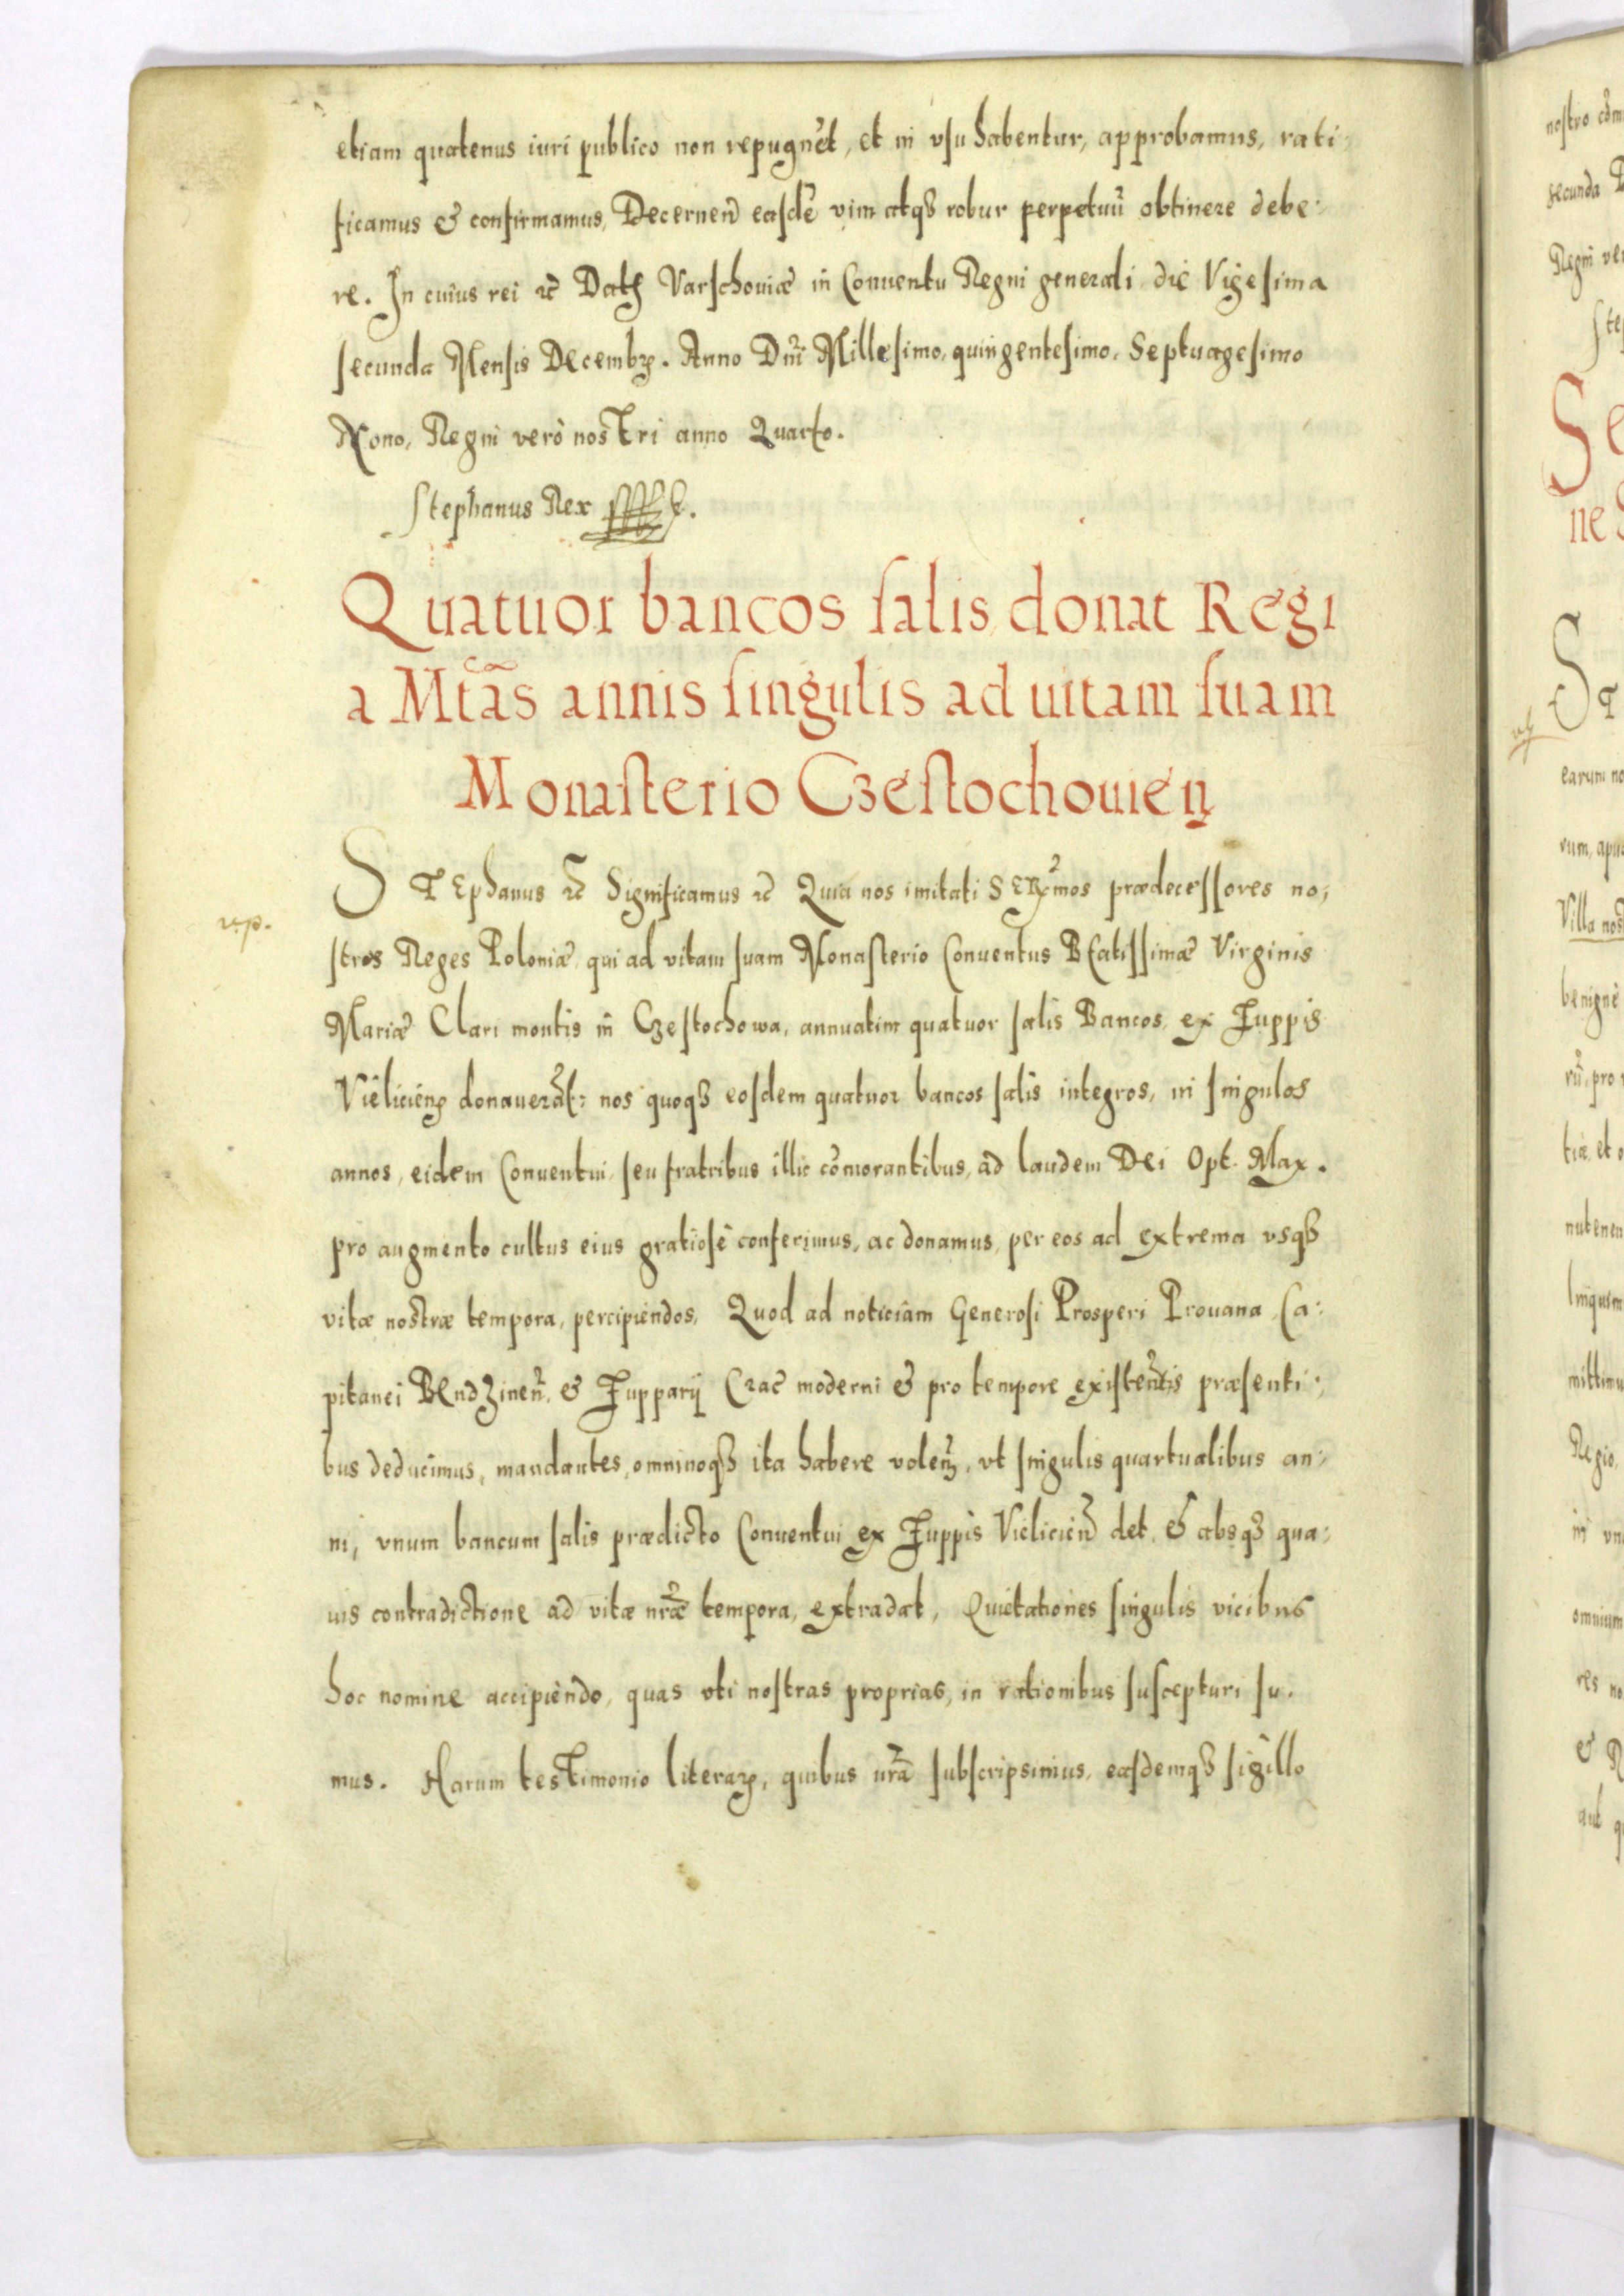 etiam quatenus iuri publico non repugnēt, et in vsu habentur, approbamus, rati-
ficamus & confirmamus, Decernen̄ easdē vim atqȝ robur perpetuū obtinere debe:
re. In cuius rei ꝛc̄ Datȝ Varschouiæ in Conuentu Regni generali die Vigesima
secunda Mensis Decembꝝ. Anno Dn̄i Millesimo, quingentesimo, Septuagesimo
Nono, Regni verò nostri anno Quarto.
Stephanus Rex
Quatuor bancos salis donat Regi
a Mtãs annis singulis ad uitam suam
Monasterio Czestochouień
STEphanus ꝛc̄ Significamus ꝛc̄ Quia nos imitati SERmos prædecessores no:
up.
stros Reges Poloniæ, qui ad vitam suam Monasterio Conuentus BEatissimæ Virginis
Mariæ Clari montis in Czestochowa, annuatim quatuor salis Bancos, ex Zuppis
Vielicień donauerāt: nos quoqȝ eosdem quatuor bancos salis integros, in singulos
annos, eidem Conuentui, seu fratribus illic cōmorantibus, ad laudem DEi Opt. Max.
pro augmento cultus eius gratiosè conferimus, ac donamus, per eos ad extrema vsqȝ
vitæ nostræ tempora, percipiendos, Quod ad noticiam Generosi Prosperi Prouana, Ca:
pitanei BEndzineń, & Zupparij Crac̄ moderni & pro tempore existeñtis præsenti:
bus deducimus, mandantes, omninoqȝ ita habere voleñ, vt singulis quartualibus an:
ni, vnum bancum salis prædicto Conuentui ex Zuppis Vielicień det, & absqȝ qua:
uis contradictione ad vitæ nr̄æ tempora, extradat, Quietationes singulis vicibus
hoc nomine accipiendo, quas vti nostras proprias, in rationibus suscepturi su.
mus. Harum testimonio literaꝝ, quibus nr̄a subscripsimus, easdemqȝ sigillo